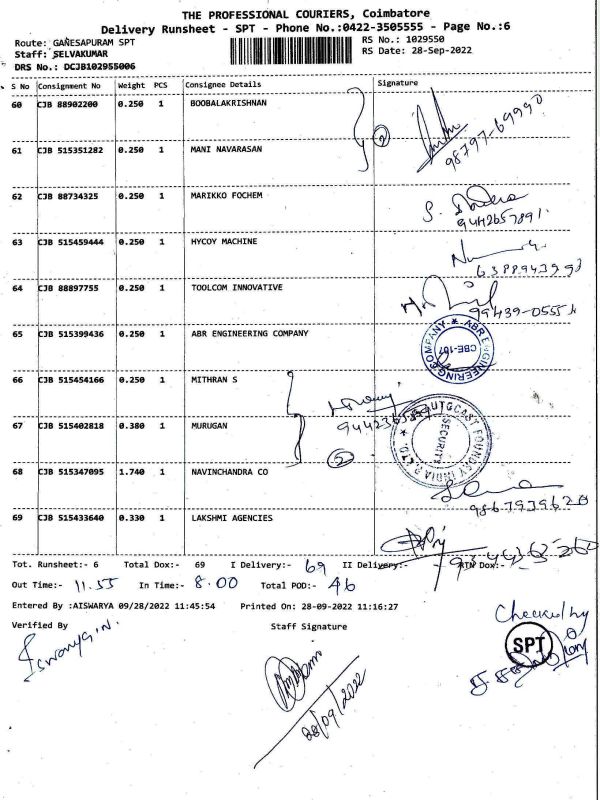 THE PROFESSIONAL COURIERS, Coimbatore
Delivery Runsheet - SPT - Phone No.:0422-3505555 - Page No.:6
Route: GANESAPURAM SPT
RS No.: 1029550
Staff: SELVAKUMAR
RS Date: 28-Sep-2022
DRS No.: DCJB102955006
S No Consignment No Weight PCS Consignee Details Signature
60 CJB 88902200 0.250 1 BOOBALAKRISHNAN
2
98797-69990
61 CJB 515351282 0.250 1 MANI NAVARASAN
62 CJB 88734325 0.250 1 MARIKKO FOCHEM
9442657891
63 CJB 515459444 0.250 1 HYCOY MACHINE
6388943993
64 CJB 88897755 0.250 1 TOOLCOM INNOVATIVE
65 CJB 515399436 0.250 1 ABR ENGINEERING COMPANY
ABR ENGINEERING COMPANY
CBE-107
66 CJB 515454166 0.250 1 MITHRAN S
67 CJB 515402818 0.380 1 MURUGAN
AUTOCAST FOUNDRY INDIA P. LTD.
SECURITY
2
68 CJB 515347095 1.740 1 NAVINCHANDRA CO
9867939628
69 CJB 515433640 0.330 1 LAKSHMI AGENCIES
Tot. Runsheet:- 6 Total Dox:- 69 I Delivery:- 69 II Delivery:- RTN Dox:-
Out Time:- 11.55 In Time:- 8.00 Total POD:- 46
Entered By :AISWARYA 09/28/2022 11:45:54 Printed On: 28-09-2022 11:16:27
Checked by
Verified By Staff Signature
SPT
Iswarya.N.
28/09/2022